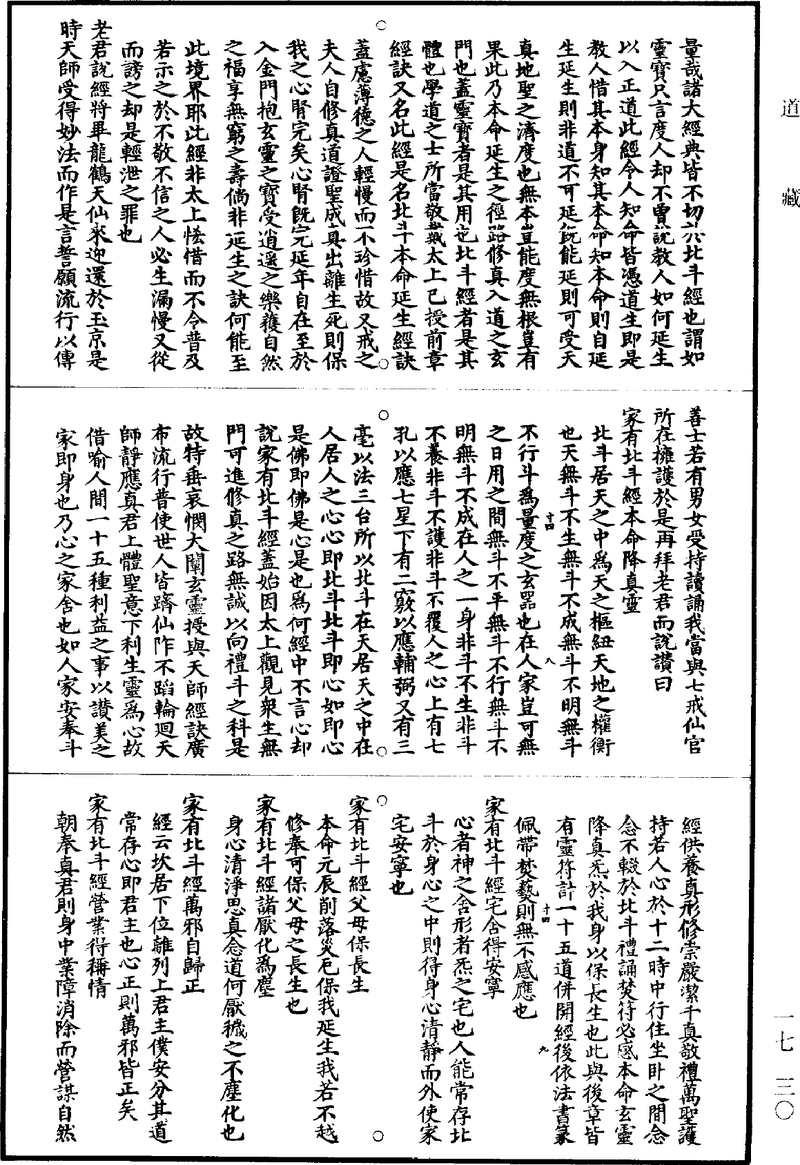 道藏
一七 三〇
量哉諸大經典皆不切於北斗經也謂如
靈寶只言度人却不曾說教人如何延生
以入正道此經令人知命皆憑道生即是
教人惜其本身知其本命知本命則自延
生延生則非道不可延旣能延則可受天
真地聖之濟度也無本豈能度無根豈有
果此乃本命延生之徑路修真入道之玄
門也蓋靈寶者是其用也北斗經者是其
體也學道之士所當敬哉太上已授前章
經訣又名此經是名北斗本命延生經訣
蓋慮薄德之人輕慢而不珍惜故又戒之
夫人自修真道證聖成真出離生死則保
我之心腎完矣心腎旣完延年自在至於
入金門抱玄靈之寶受逍遥之樂獲自然
之福享無窮之壽倘非延生之訣何能至
此境界耶此經非太上悋惜而不令普及
若示之於不敬不信之人必生漏慢又從
而謗之却是輕泄之罪也
老君說經將畢龍鶴天仙來迎還於玉京是
時天師受得妙法而作是言誓願流行以傳
善士若有男女受持讀誦我當與七戒仙官
所在擁護於是再拜老君而說讚曰
家有北斗經本命降真靈
北斗居天之中爲天之樞紐天地之權衡
也天無斗不生無斗不成無斗不明無斗
不行斗爲量度之玄器也在人家豈可無
之日用之間無斗不平無斗不行無斗不
明無斗不成在人之一身非斗不生非斗
不養非斗不護非斗不覆人之心上有七
孔以應七星下有二竅以應輔弼又有三
毫以法三台所以北斗在天居天之中在
人居人之心心即北斗北斗即心如即心
是佛即佛是心是也爲何經中不言心却
說家有北斗經蓋始因太上觀見衆生無
門可進修真之路無誠以向禮斗之科是
故特垂哀憫大闡玄靈授與天師經訣廣
布流行普使世人皆躋仙阼不蹈輪迴天
師靜應真君上體聖意下利生靈爲心故
借喻人間一十五種利益之事以讚美之
家即身也乃心之家舍也如人家安奉斗
經供養真形修崇嚴潔千真敬禮萬聖護
持若人心於十二時中行住坐卧之間念
念不輟於北斗禮誦焚符必感本命玄靈
降真炁於我身以保長生也此與後章皆
有靈符計一十五道併開經後依法書篆
佩帶焚爇則無不感應也
家有北斗經宅舍得安寧
心者神之舍形者炁之宅也人能常存北
斗於身心之中則得身心清靜而外使家
宅安寧也
家有北斗經父母保長生
本命元辰削落災厄保我延生我若不越
修奉可保父母之長生也
家有北斗經諸厭化爲塵
身心清淨思真念道何厭穢之不塵化也
家有北斗經萬邪自歸正
經云坎居下位離列上君主僕安分其道
常存心即君主也心正則萬邪皆正矣
家有北斗經營業得稱情
朝奉真君則身中業障消除而營謀自然
十四
八
十四
九